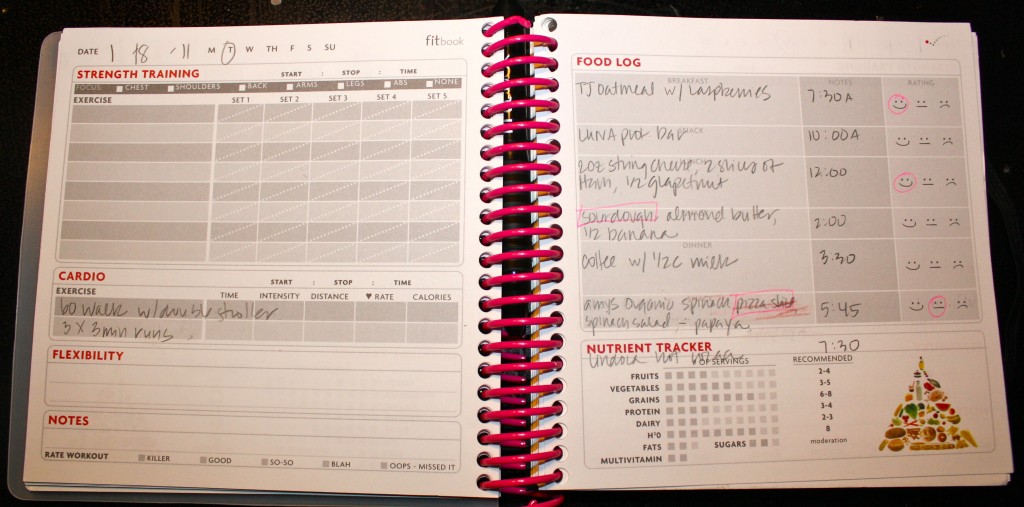 DATE 1 18 '11 M T W TH F S SU
fitbook
STRENGTH TRAINING START : STOP : TIME
FOCUS: CHEST SHOULDERS BACK ARMS LEGS ABS NONE
EXERCISE SET 1 SET 2 SET 3 SET 4 SET 5
CARDIO START : STOP : TIME
EXERCISE TIME INTENSITY DISTANCE ♥ RATE CALORIES
60 walk w/double stroller
3 x 3min runs
FLEXIBILITY
NOTES
RATE WORKOUT KILLER GOOD SO-SO BLAH OOPS - MISSED IT
FOOD LOG
BREAKFAST NOTES RATING
TJ oatmeal w/ raspberries 7:30A
LUNA prot bar 10:00A
2oz string cheese, 2 slices of 12:00
Ham, 1/2 grapefruit
sourdough, almond butter, 2:00
1/2 banana
DINNER
coffee w/ 1/2c milk 3:30
amys organic spinach pizza 5:45
spinach salad, - papaya
7:30
NUTRIENT TRACKER
# OF SERVINGS RECOMMENDED
FRUITS 2-4
VEGETABLES 3-5
GRAINS 6-8
PROTEIN 3-4
DAIRY 2-3
H²0 8
FATS SUGARS moderation
MULTIVITAMIN